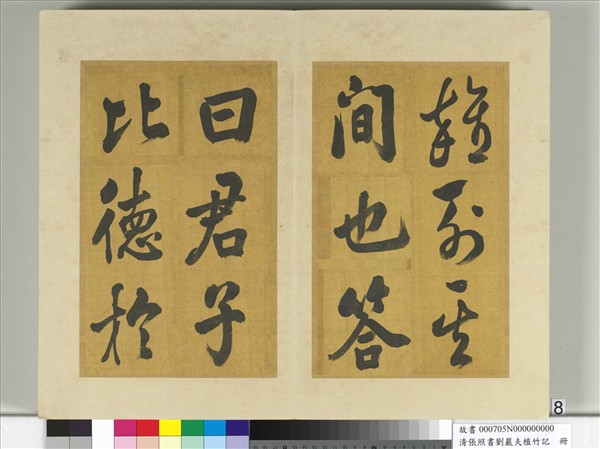 雜列其
間也答
曰君子
比德於
8
故書 000705N000000000
清張照書劉巖夫植竹記 冊